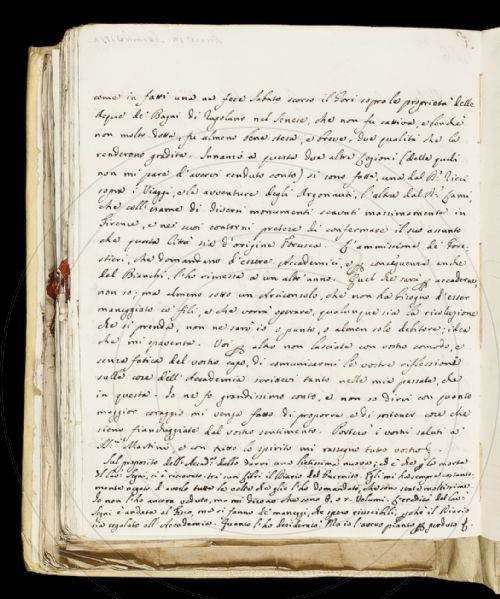 come in fatti una ne fece Sabato scorso il Gori sopra le proprietà delle
Acque de' Bagni di Rapolano nel Senese, che non fu cattiva, e benchè
non molto dotta, fu almeno bene stesa, e breve, due qualità che la
renderono gradita. Innanzi a questa due altre Lezioni (delle quali
non mi pare d'avervi renduto conto) si sono fatte, una dal Ricci
sopra i Viaggi, e le avventure degli Argonauti, l'altra dal Lami,
che coll'esame di diversi monumenti scavati massimamente in
Firenze, e ne' suoi contorni pretese di confermare il suo assunto
che questa Città sia d'origine Etrusca. L'ammissione de' Fore-
stieri, che domandano d'essere Accademici, e conseguenza anche
del Bianchi, l'ho rimessa a un altr'anno. Quel che sarà accaderne,
non so; ma almeno sotto un Arciconsolo, che non ha bisogno d'esser
maneggiato co' fili, e che vorrà operare, qualunque sia la risoluzione
che si prenda, non ne sarò io a punto, o almen solo debitore; idea
che mi spaventa. Voi altro non lasciate con vostro comodo, e
senza fatica del vostro capo, di comunicarmi le vostre riflessioni
sulle cose dell'Accademia scrittevi tanto nella mia passata, che
in questa. Io ne fo grandissimo conto, e non so dirvi con quanto
maggior coraggio mi venga fatto di proporre e di sostener cose che
sieno fiancheggiate dal vostro sentimento. Porterò i vostri saluti a
Martini, e con tutto lo spirito mi rassegno tutto vostro
Sul proposito dell' Accad. debbo darvi una lietissima nuova; ed è che la morte
del Segni, si è ritrovato tra' suoi libri il Diario del Inferrigno. Egli mi ha sempre costante-
mente negato d'averlo tutte le volte che glie l'ho domandato, che sono state moltissime.
Io non l'ho ancora veduto, ma mi dicono che sono 8. o 9. Volumi. L'eredità del
Segni è andata al Fisco, ma si fanno de' maneggi, che spero riuscibili, perchè il Diario
sia regalato all'Accademia. Quanto l'ho desiderato! Ma io l'avevo pianto perduto